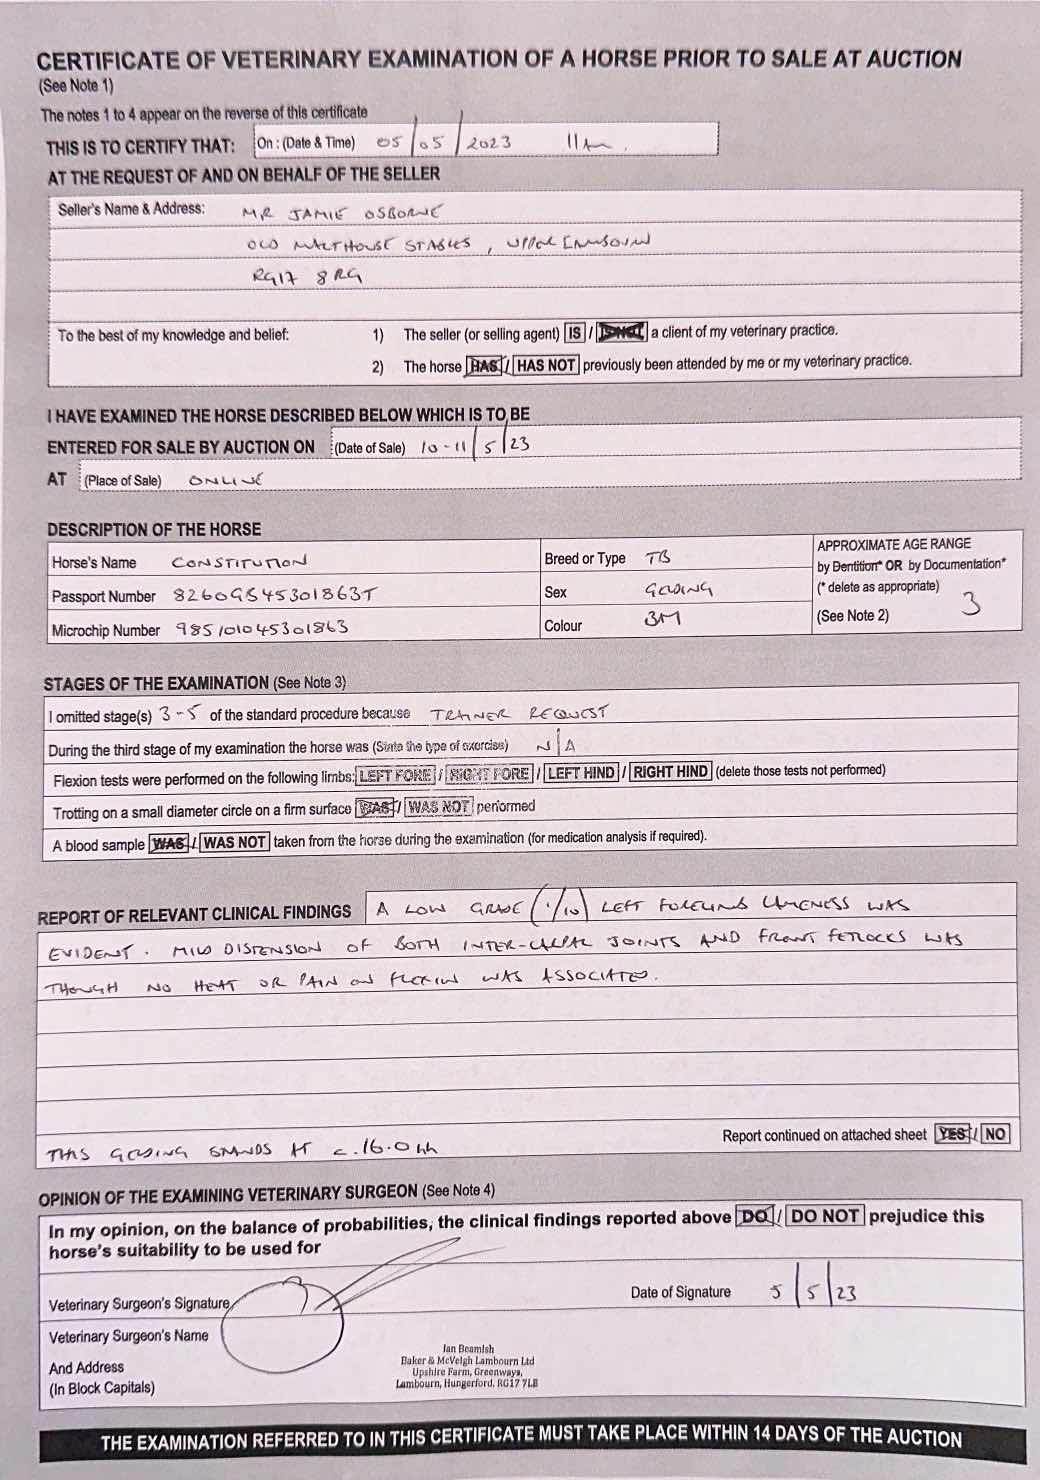 CERTIFICATE OF VETERINARY EXAMINATION OF A HORSE PRIOR TO SALE AT AUCTION
(See Note 1)
The notes 1 to 4 appear on the reverse of this certificate
THIS IS TO CERTIFY THAT: On : (Date & Time) 05/05/2023 11am.
AT THE REQUEST OF AND ON BEHALF OF THE SELLER
Seller's Name & Address: MR JAMIE OSBORNE
OLD MALTHOUSE STABLES, UPPER LAMBOURN
RG17 8RG
To the best of my knowledge and belief: 1) The seller (or selling agent) IS / IS NOT a client of my veterinary practice.
2) The horse HAS / HAS NOT previously been attended by me or my veterinary practice.
I HAVE EXAMINED THE HORSE DESCRIBED BELOW WHICH IS TO BE
ENTERED FOR SALE BY AUCTION ON (Date of Sale) 10-11/5/23
AT (Place of Sale) ONLINE
DESCRIPTION OF THE HORSE
Horse's Name CONSTITUTION Breed or Type TB APPROXIMATE AGE RANGE
by Dentition* OR by Documentation*
Passport Number 8260GB45301863T Sex GELDING (* delete as appropriate) 3
Microchip Number 985101045301863 Colour BM (See Note 2)
STAGES OF THE EXAMINATION (See Note 3)
I omitted stage(s) 3-5 of the standard procedure because TRAINER REQUEST
During the third stage of my examination the horse was (State the type of exercise) N/A
Flexion tests were performed on the following limbs: LEFT FORE / RIGHT FORE / LEFT HIND / RIGHT HIND (delete those tests not performed)
Trotting on a small diameter circle on a firm surface WAS / WAS NOT performed
A blood sample WAS / WAS NOT taken from the horse during the examination (for medication analysis if required).
REPORT OF RELEVANT CLINICAL FINDINGS A LOW GRADE (1/10) LEFT FORELIMB LAMENESS WAS
EVIDENT. MILD DISTENSION OF BOTH INTER-CARPAL JOINTS AND FRONT FETLOCKS WAS
THOUGH NO HEAT OR PAIN ON FLEXION WAS ASSOCIATED.
Report continued on attached sheet YES / NO
THIS GELDING STANDS AT c.16.0hh
OPINION OF THE EXAMINING VETERINARY SURGEON (See Note 4)
In my opinion, on the balance of probabilities, the clinical findings reported above DO / DO NOT prejudice this
horse's suitability to be used for
Veterinary Surgeon's Signature Date of Signature 5/5/23
Veterinary Surgeon's Name
And Address
(In Block Capitals)
Ian Beamish
Baker & McVeigh Lambourn Ltd
Upshire Farm, Greenways,
Lambourn, Hungerford. RG17 7LB
THE EXAMINATION REFERRED TO IN THIS CERTIFICATE MUST TAKE PLACE WITHIN 14 DAYS OF THE AUCTION